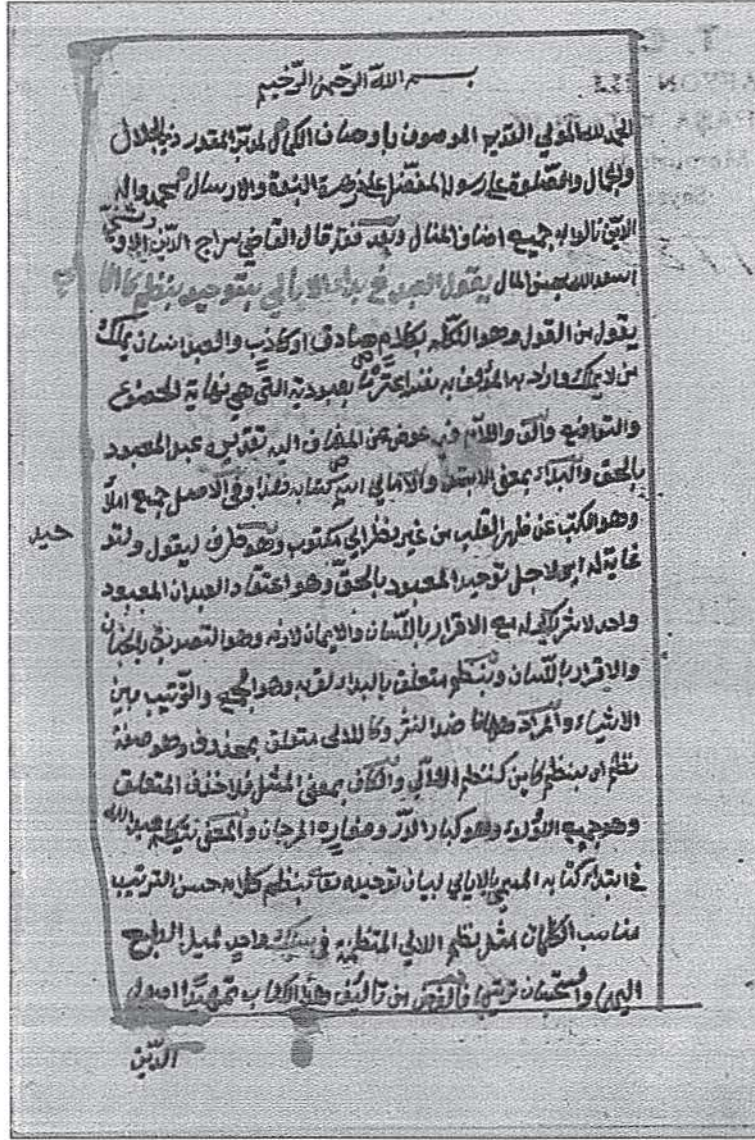 بسم الله الرحمن الرحيم
الحمد لله المولي القديم الموصوف باوصاف الكمال لمدبر المقدور ذي الجلال
والجمال والصلوة علي رسوله المفضل علي زمرة النبوة والارسال محمد واله
الذين نالوا به جميع اصناف المنال وبعد فقد قال القاضي سراج الدين الاوشي
اسعده الله بحسن المال يقول العبد في بداء الامالي بتوحيد بنظم كاللا
لي
يقول من القول وهو التكلم بكلام صادق او كاذب والعبد انسان يملك
من لا يملك واراد به المؤلف به نفسه اعترافا بعبوديته التي هي نهاية الخضوع
والتواضع والف واللام فيه عوض عن المضاف اليه تقديره عبد المعبود
بالحق والبداء بمعني الابتداء والامالي اسم كتابه هذا وفي الاصل جميع املا
وهو الكتب عن ظهر القلب من غير نظر الي مكتوب وهو ظرف ليقول ولتو
حيد
غاية له اي لاجل توحيد المعبود بالحق وهو اعتقاد العبد ان المعبود
واحد لا شريك له مع الاقرار باللسان والايمان لازمه وهو التصديق بالجنان
والاقرار باللسان وبنظم متعلق بالبداء لقربه وهو الجمع والترتيب بين
الاشياء والمراد ههنا ضد النثر وكاللالي متعلق بمحذوف وهو صفة
نظم اي بنظم كاين كنظم اللآلي والكاف بمعني المثل فلا حذف المتعلق
وهو جمع اللؤلؤ وهو كبار الدر وصغاره المرجان والمعني يتكلم عبد الله
في ابتداء كتابه المسمي بالامالي لبيان توحيده تعا بنظم كلامه حسن الترتيب
مناسب الكلمات مثل نظم اللالي المنتظمة في سلك واحد تميل الطبايع
اليها والمستحسان ترتيبها فالغرض من تاليف وهذا الكتاب تمهيدا اصول
الدين